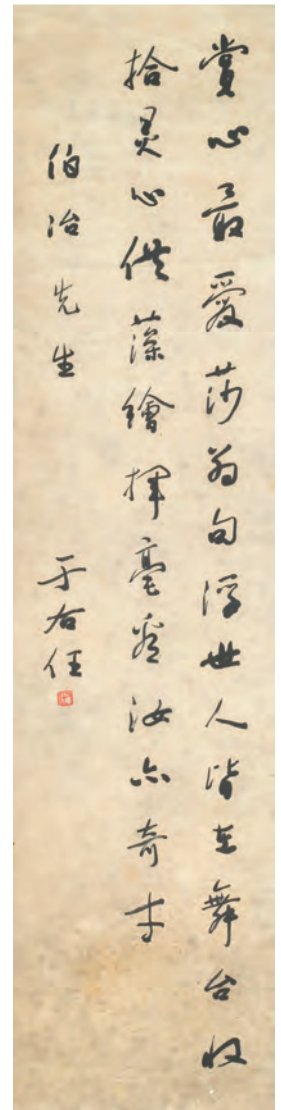 赏心最爱莎翁句浮世人皆至舞台收
拾灵心供藻繪揮毫看汝亦奇才
伯冶先生
于右任